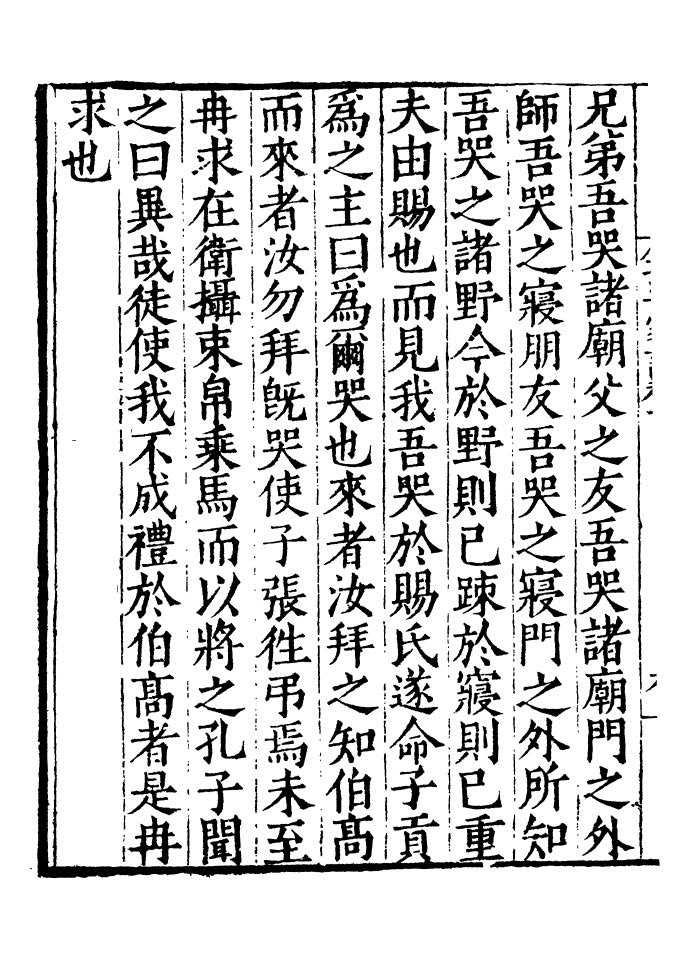 兄弟吾哭諸廟父之友吾哭諸廟門之外
師吾哭之寢朋友吾哭之寢門之外所知
吾哭之諸野今於野則已踈於寢則已重
夫由賜也而見我吾哭於賜氏遂命子貢
爲之主曰爲爾哭也來者汝拜之知伯髙
而來者汝勿拜旣哭使子張徃弔焉未至
冉求在衛攝束帛乗馬而以將之孔子聞
之曰異哉徒使我不成禮於伯髙者是冉
求也